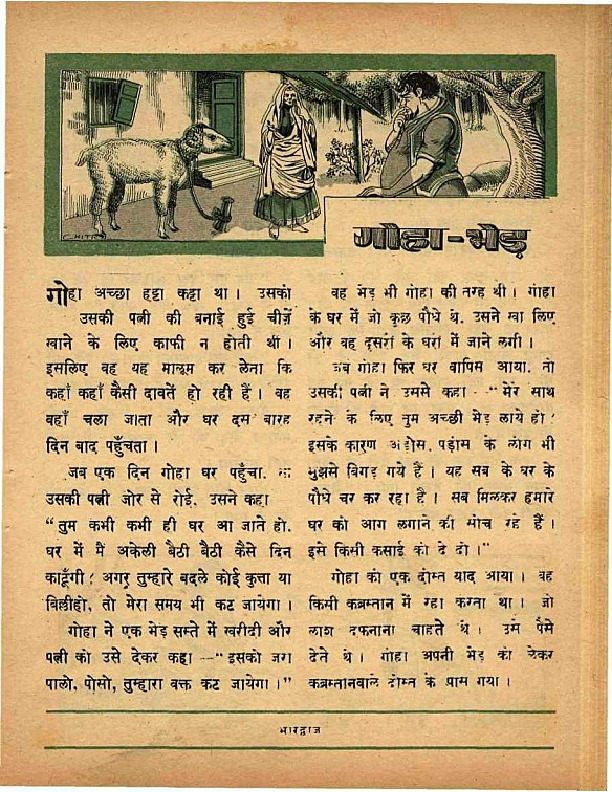 CHITRA
गोहा-भेड़
गोहा अच्छा हट्टा कट्टा था। उसको
उसकी पत्नी की बनाई हुई चीज़ें
खाने के लिए काफी न होती थीं।
इसलिए वह यह मालूम कर लेना कि
कहाँ कहाँ कैसी दावतें हो रही हैं। वह
वहाँ चला जाता और घर दस बारह
दिन बाद पहुँचता।
जब एक दिन गोहा घर पहुँचा,
उसकी पत्नी जोर से रोई, उसने कहा
"तुम कभी कभी ही घर आ जाते हो,
घर में मैं अकेली बैठी बैठी कैसे दिन
काटूँगी? अगर तुम्हारे बदले कोई कुत्ता या
बिल्लीहो, तो मेरा समय भी कट जायेगा।
गोहा ने एक भेड़ सस्ते में खरीदी और
पत्नी को उसे देकर कहा—"इसको जरा
पालो, पोसो, तुम्हारा वक्त कट जायेगा।"
वह भेड़ भी गोहा की तरह थी। गोहा
के घर में जो कुछ पौधे थे, उसने खा लिए
और वह दूसरों के घरों में जाने लगी।
जब गोहा फिर घर वापिस आया, तो
उसकी पत्नी ने उससे कहा—"मेरे साथ
रहने के लिए तुम अच्छी भेड़ लाये हो!
इसके कारण अड़ोस, पड़ोस के लोग भी
मुझसे बिगड़ गये हैं। यह सब के घर के
पौधे चर कर रहा है। सब मिलकर हमारे
घर को आग लगाने की सोच रहे हैं।
इसे किसी कसाई को दे दो।"
गोहा को एक दोस्त याद आया। वह
किसी कब्रस्तान में रहा करता था। जो
लाश दफनाना चाहते थे। उसे पैसे
देते थे। गोहा अपनी भेड़ को लेकर
कब्रस्तानवाले दोस्त के पास गया।
भारद्वाज